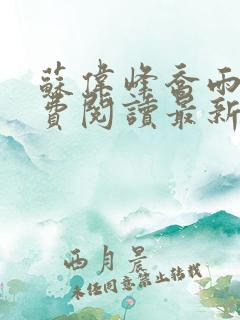 蘇偉峰喬雨
費閱讀最新
西月晨
未经同意禁止转载